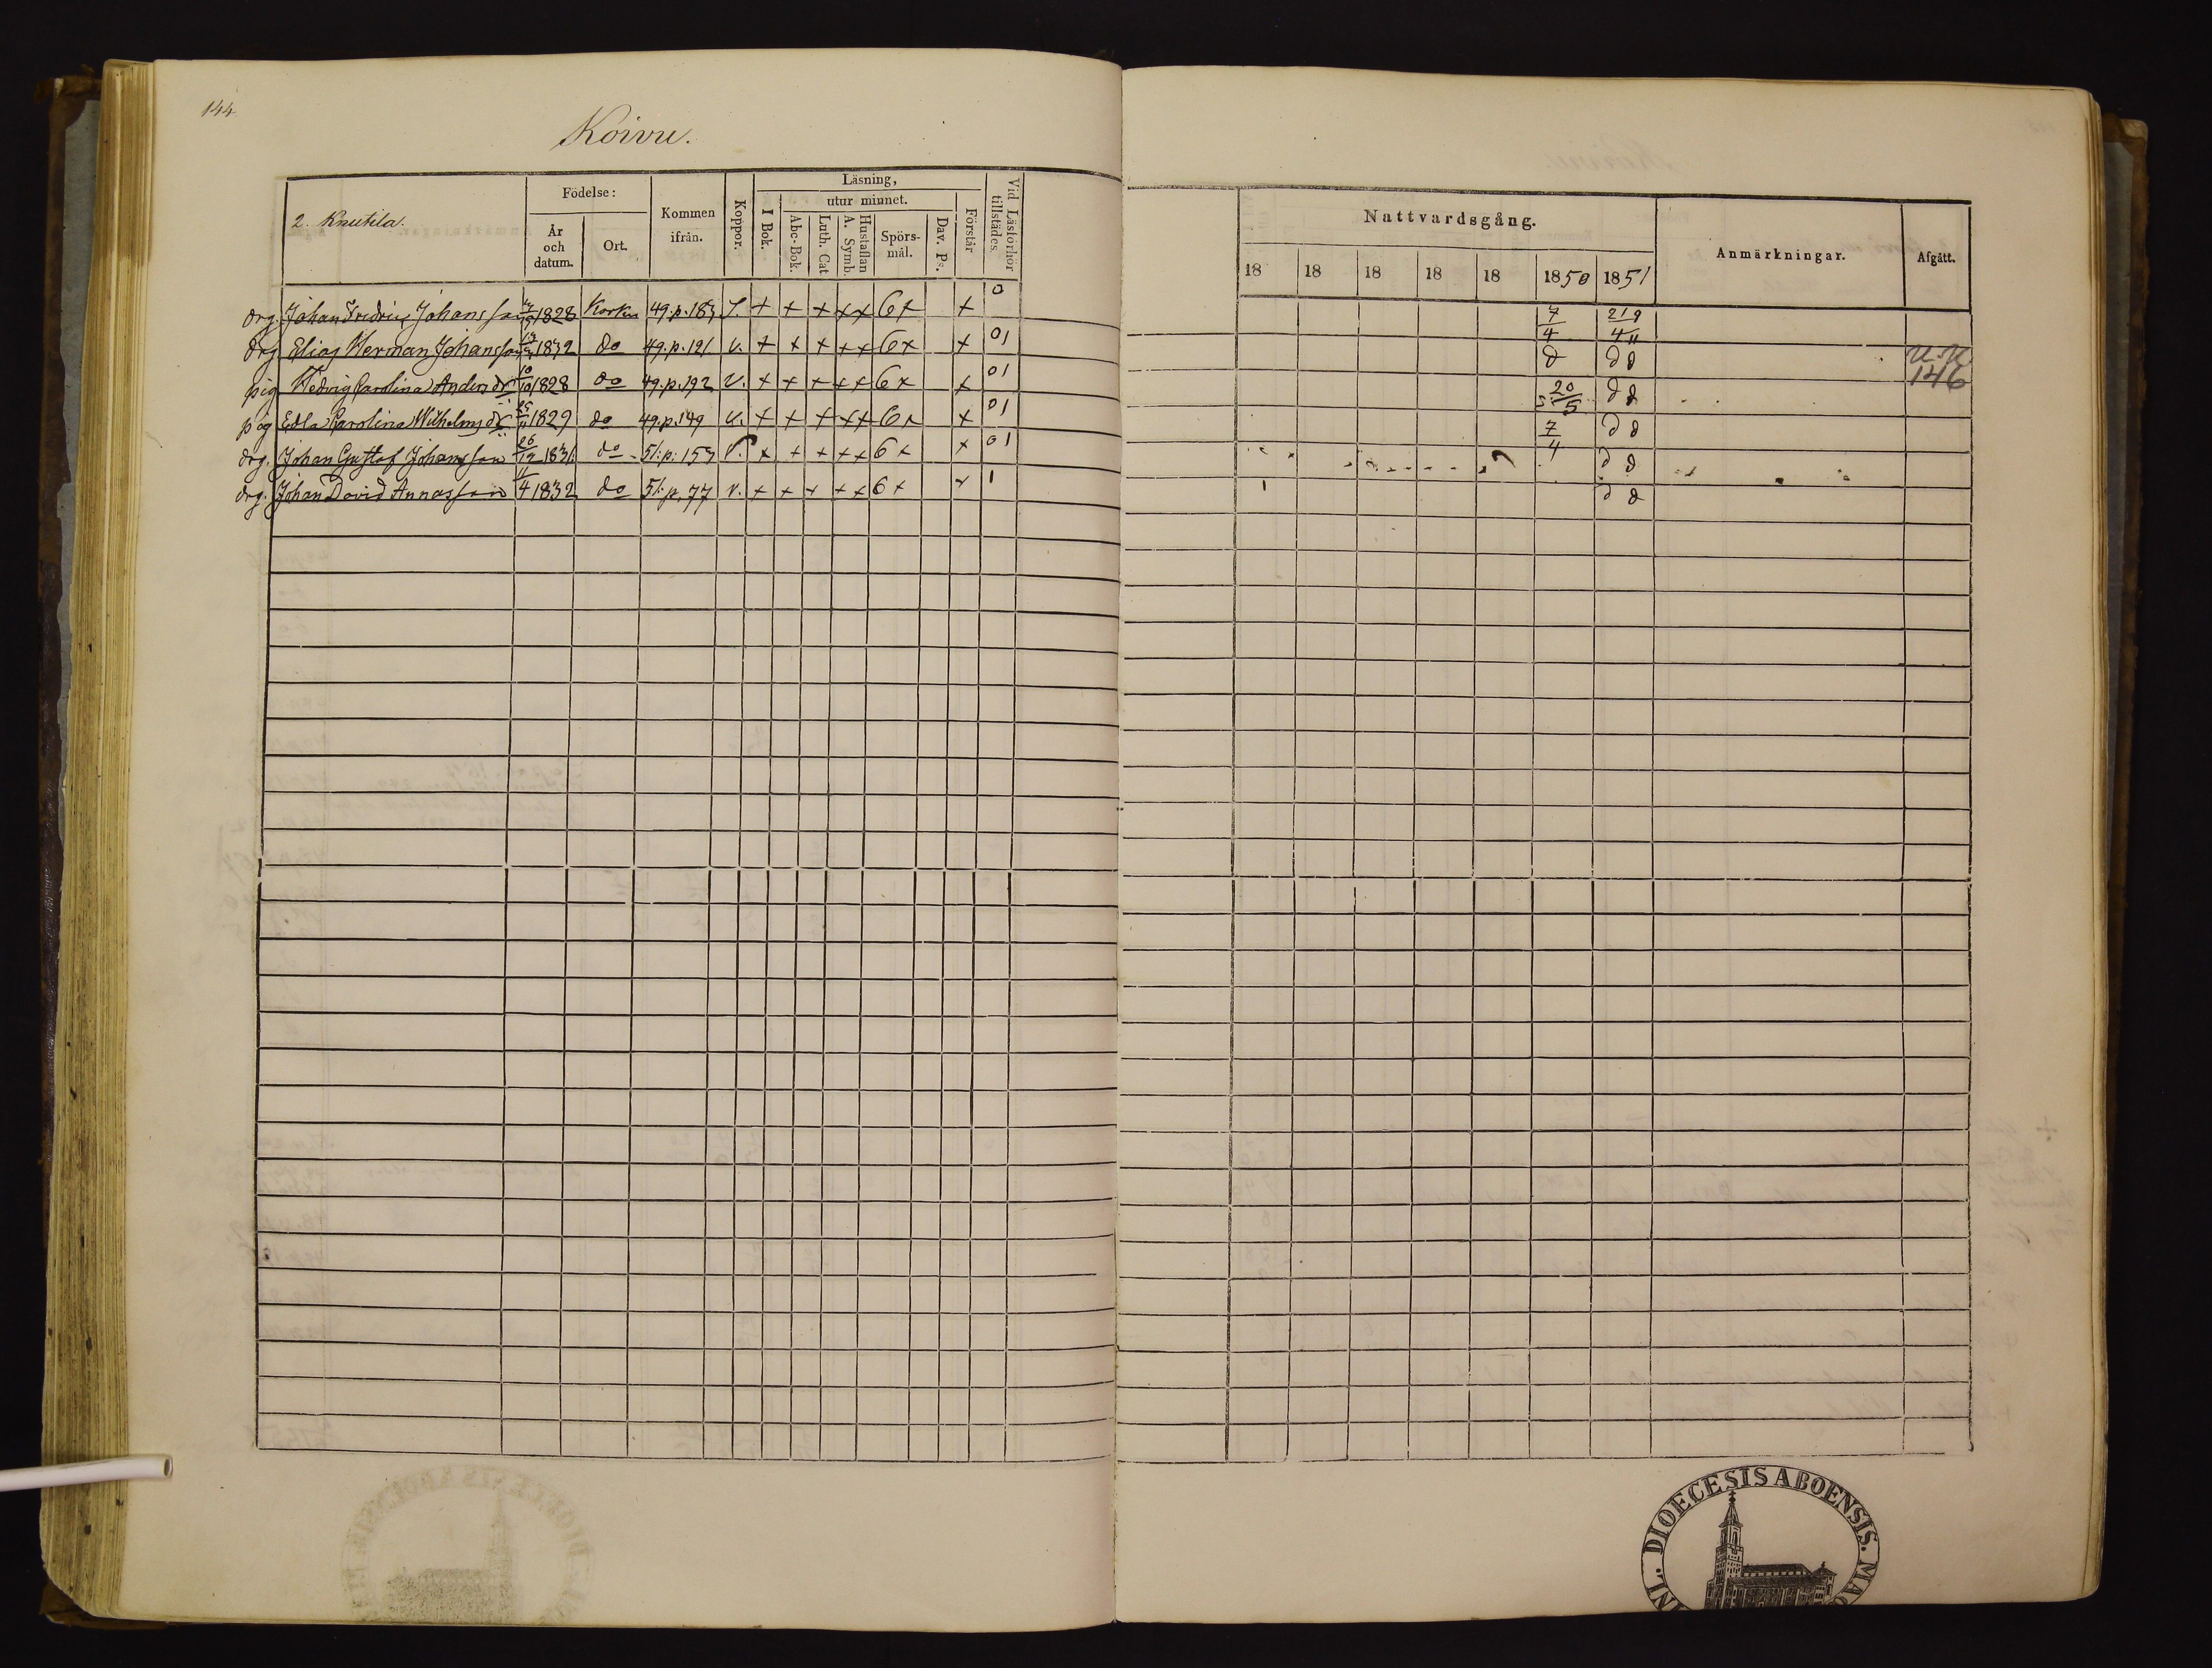 144
Koivu.
2. Knutila.
Födelse:
År och datum.
Ort.
Kommen ifrån.
Koppor.
Läsning,
I Bok.
utur minnet.
Abc-Bok.
Luth. Cat
Hustaflan A. Symb.
Spörs-mål.
Dav. Ps.
Förstår
Vid Läsförhör tillstädes.
Nattvardsgång.
18 18 18 18 18 1850 1851
Anmärkningar.
Afgått.
drg. Johan Fredric Johansson 1828 49.p.183 + + + + + 6 + + 0 7/4 21 9 4 11
drg Elias Herman Johansson 1832 do 49.p.121. v. + + + + + 6 + + 01 d d d
pig Hedvig Carolina Andersdr 10/10 1828 do 49.p.192 v. + + + + + 6 + + 01 20/5 d d 146
pig Edla Carolina Wilhelmsdr 25/11 1829 do 49.p.149 v. + + + + + 6 + + 01 7/4 d d
drg. Johan Gustaf Johansson 26/12 1831. do 51.p.153 v. + + + + + 6 + + 01 d d
drg. Johan David Annasson 4 1832 do 51.p.77 v. + + + + + 6 + + 1 d d
DIOECESIS ABOENSIS.